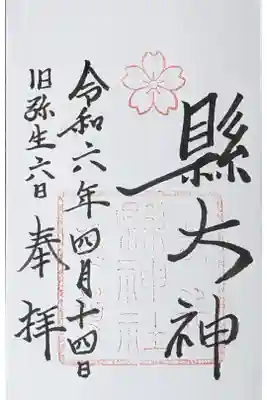 縣大神
令和六年四月十四日
旧弥生六日 奉拝